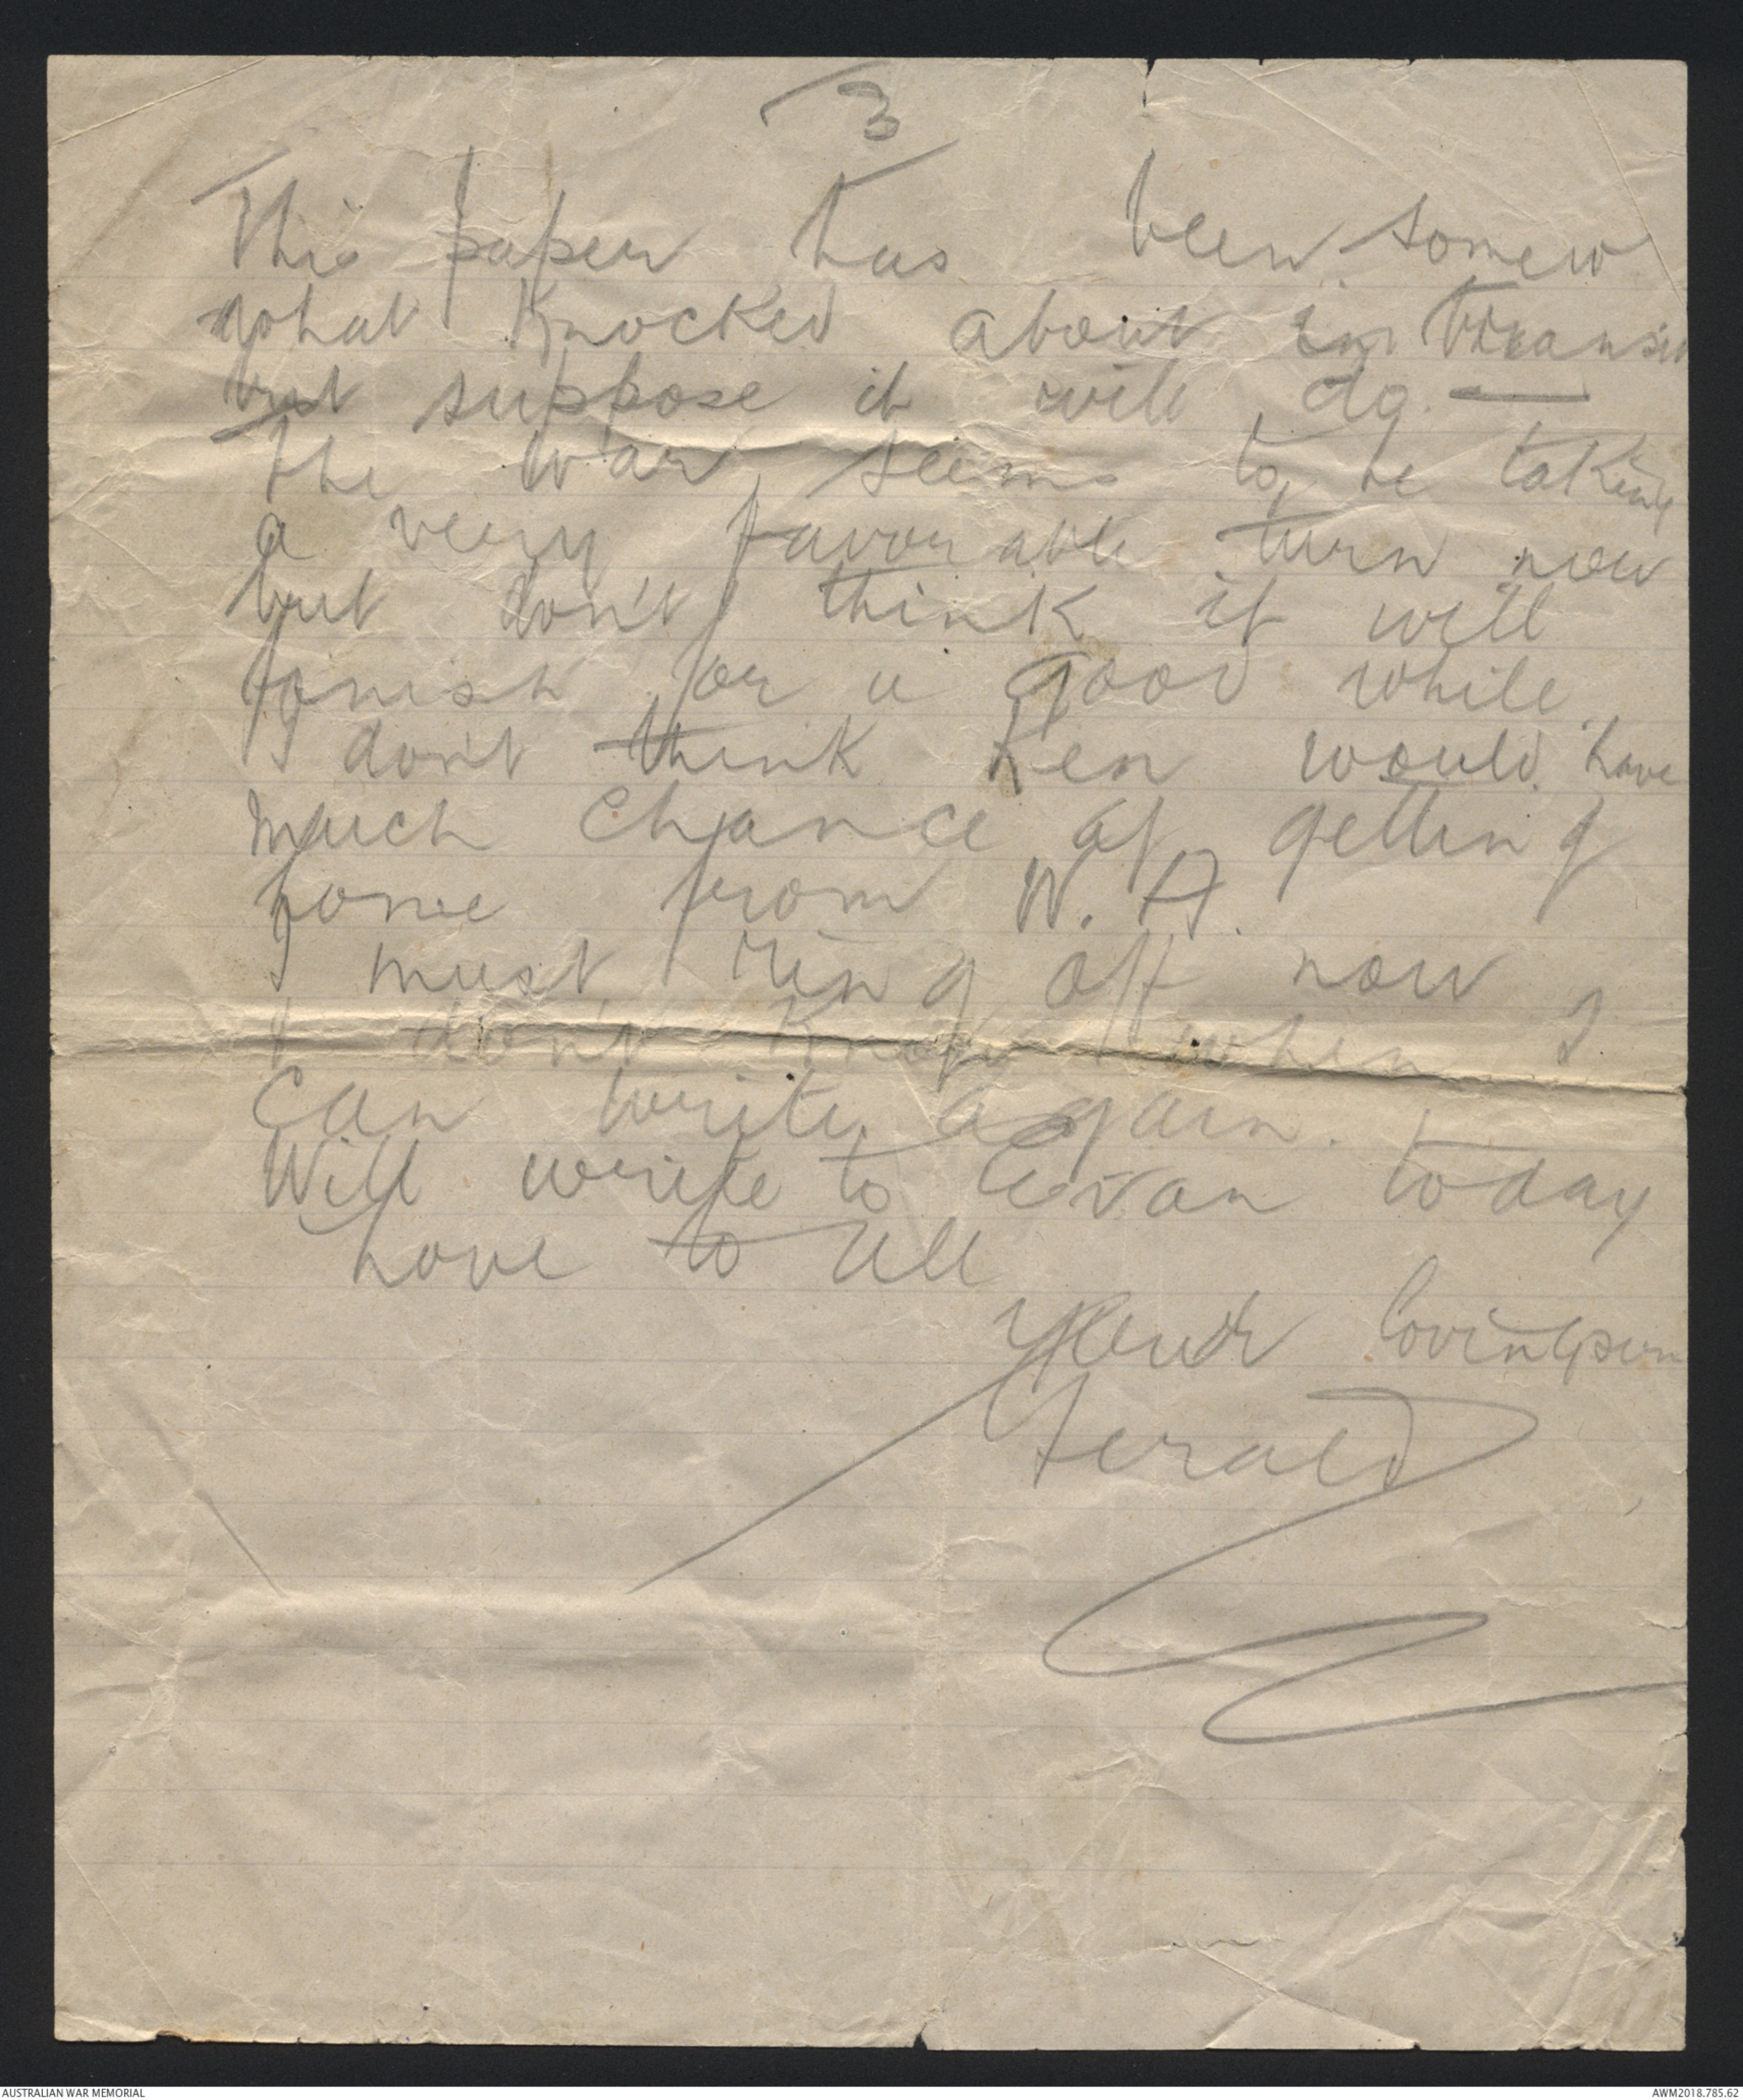 3
This paper has been somew
what knocked about in transit
but suppose it will do. —
The war seems to be taking
a very favourable turn now
but don't think it will
finish for a good while.
I don't think Ken would have
much chance of getting
home from W. A.
I must ring off now
I don't know when I
can write again.
Will write to Evan today
Love to all
Your loving son
Gerald
AUSTRALIAN WAR MEMORIAL
AWM2018.785.62